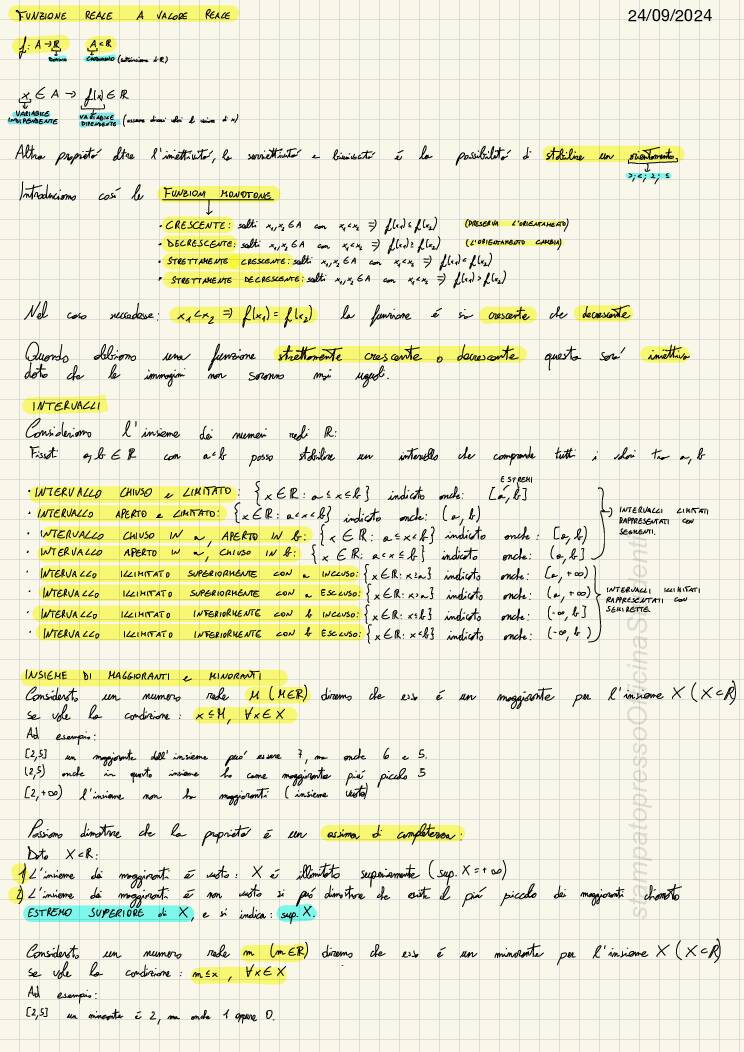 FUNZIONE REALE A VALORE REALE
24/09/2024
f: A→R A⊂R
DOMINIO CODOMINIO (sottoinsieme di R)
x ∈ A → f(x) ∈ R
VARIABILE INDIPENDENTE VARIABILE DIPENDENTE
Altra proprietà oltre l'iniettività, la suriettività e biunivocità è la possibilità di stabilire un orientamento.
>; <; ≥; ≤
Introduciamo così le FUNZIONI MONOTONE
· CRESCENTE: scelti x₁,x₂ ∈ A con x₁<x₂ ⇒ f(x₁) ≤ f(x₂) (PRESERVA L'ORIENTAMENTO)
· DECRESCENTE: scelti x₁,x₂ ∈ A con x₁<x₂ ⇒ f(x₁) ≥ f(x₂) (L'ORIENTAMENTO CAMBIA)
· STRETTAMENTE CRESCENTE: scelti x₁,x₂ ∈ A con x₁<x₂ ⇒ f(x₁) < f(x₂)
· STRETTAMENTE DECRESCENTE: scelti x₁,x₂ ∈ A con x₁<x₂ ⇒ f(x₁) > f(x₂)
Nel caso succedesse: x₁<x₂ ⇒ f(x₁) = f(x₂) la funzione è sia crescente che decrescente
Quando abbiamo una funzione strettamente crescente o decrescente questa sarà iniettiva
dato che le immagini non saranno mai uguali.
INTERVALLI
Consideriamo l'insieme dei numeri reali R:
Fissati a,b ∈ R con a<b posso stabilire un intervallo che comprende tutti i valori tra a, b
ESTREMI
· INTERVALLO CHIUSO e LIMITATO: {x ∈ R: a ≤ x ≤ b} indicato anche: [a,b]
· INTERVALLO APERTO e LIMITATO: {x ∈ R: a<x<b} indicato anche: (a,b)
· INTERVALLO CHIUSO IN a, APERTO IN b: {x ∈ R: a ≤ x < b} indicato anche: [a,b)
· INTERVALLO APERTO IN a, CHIUSO IN b: {x ∈ R: a<x ≤ b} indicato anche: (a,b]
INTERVALLI LIMITATI RAPPRESENTATI CON SEGMENTI.
· INTERVALLO ILLIMITATO SUPERIORMENTE CON a INCLUSO: {x ∈ R: x ≥ a} indicato anche: [a,+∞)
· INTERVALLO ILLIMITATO SUPERIORMENTE CON a ESCLUSO: {x ∈ R: x>a} indicato anche: (a,+∞)
· INTERVALLO ILLIMITATO INFERIORMENTE CON b INCLUSO: {x ∈ R: x ≤ b} indicato anche: (-∞,b]
· INTERVALLO ILLIMITATO INFERIORMENTE CON b ESCLUSO: {x ∈ R: x<b} indicato anche: (-∞,b)
INTERVALLI ILLIMITATI RAPPRESENTATI CON SEMIRETTE
INSIEME DI MAGGIORANTI e MINORANTI
Considerato un numero reale M (M∈R) diremo che esso è un maggiorante per l'insieme X (X⊂R)
se vale la condizione: x ≤ M, ∀x ∈ X
Ad esempio:
[2,5] un maggiorante dell'insieme può essere 7, ma anche 6 e 5.
(2,5) anche in questo insieme ho come maggiorante più piccolo 5
[2,+∞) l'insieme non ha maggioranti (insieme vuoto)
Possiamo dimostrare che la proprietà è un assioma di completezza:
Dato X⊂R:
1) L'insieme dei maggioranti è vuoto: X è illimitato superiormente (sup. X = +∞)
2) L'insieme dei maggioranti è non vuoto si può dimostrare che esiste il più piccolo dei maggioranti chiamato
ESTREMO SUPERIORE di X, e si indica: sup. X.
Considerato un numero reale m (m∈R) diremo che esso è un minorante per l'insieme X (X⊂R)
se vale la condizione: m ≤ x, ∀x ∈ X
Ad esempio:
[2,5] un minorante è 2, ma anche 1 oppure 0.
stampatopressoOfficinaStudenti